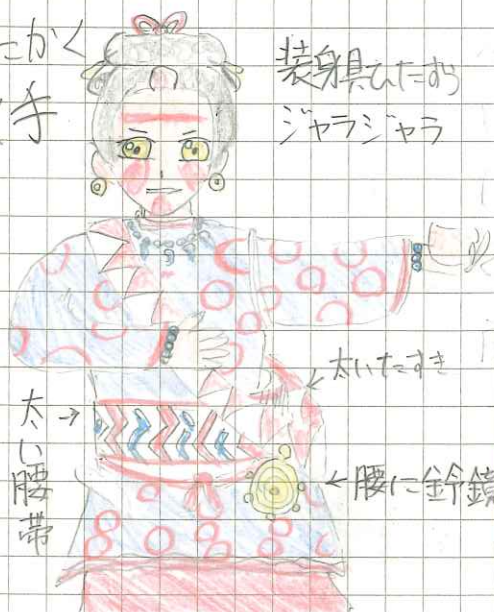 とにかく
派手
装身具ひたすら
ジャラジャラ
太いたすき
太い腰帯
腰に鈴鏡